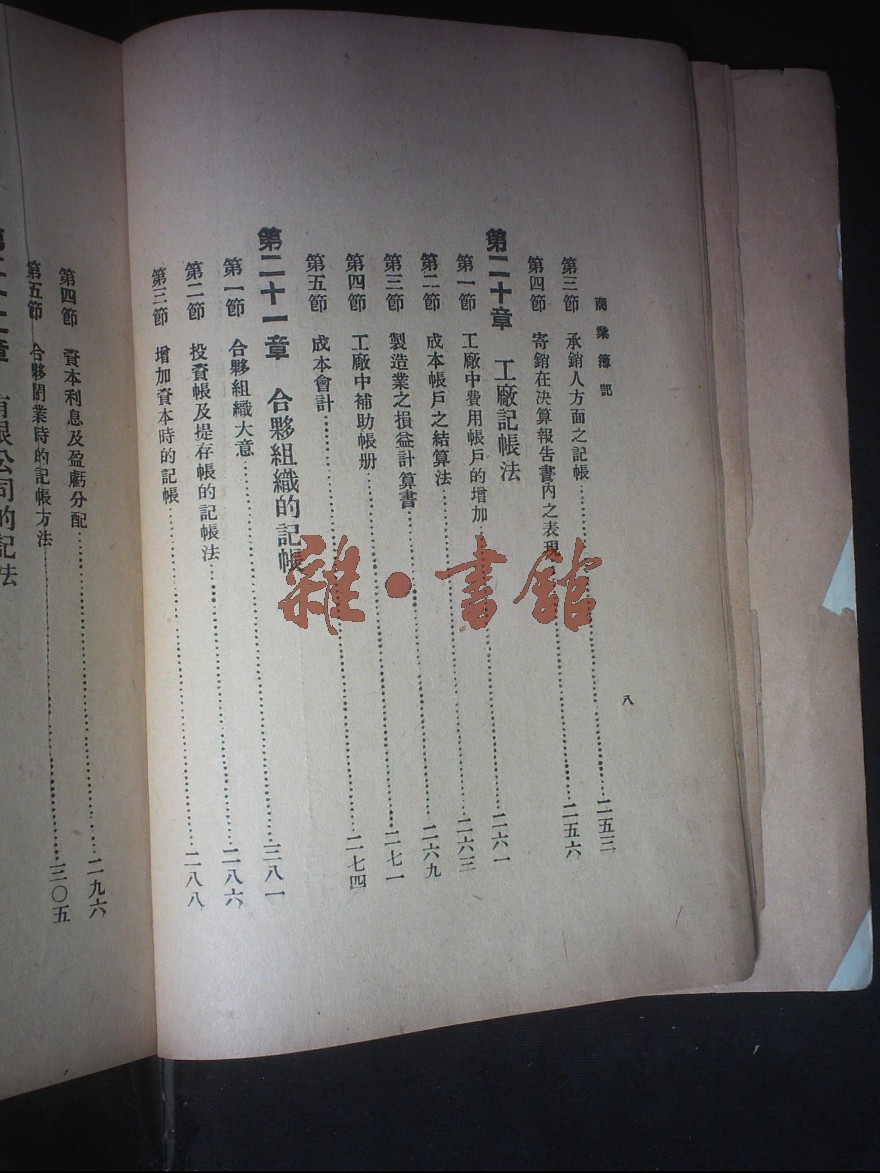 商業簿記
第三節 承銷人方面之記帳……二五三
第四節 寄銷在決算報告書內之表現……二五六
第二十章 工廠記帳法
第一節 工廠中費用帳戶的增加……二六一
第二節 成本帳戶之結算法……二六三
第三節 製造業之損益計算書……二六九
第四節 工廠中補助帳册……二七一
第五節 成本會計……二七四
第二十一章 合夥組織的記帳
第一節 合夥組織大意……三八一
第二節 投資帳及提存帳的記帳法……二八六
第三節 增加資本時的記帳……二八八
八
第四節 資本利息及盈虧分配……二九六
第五節 合夥開業時的記帳方法……三〇五
第二十二章 有限公司的記法
雜·書館